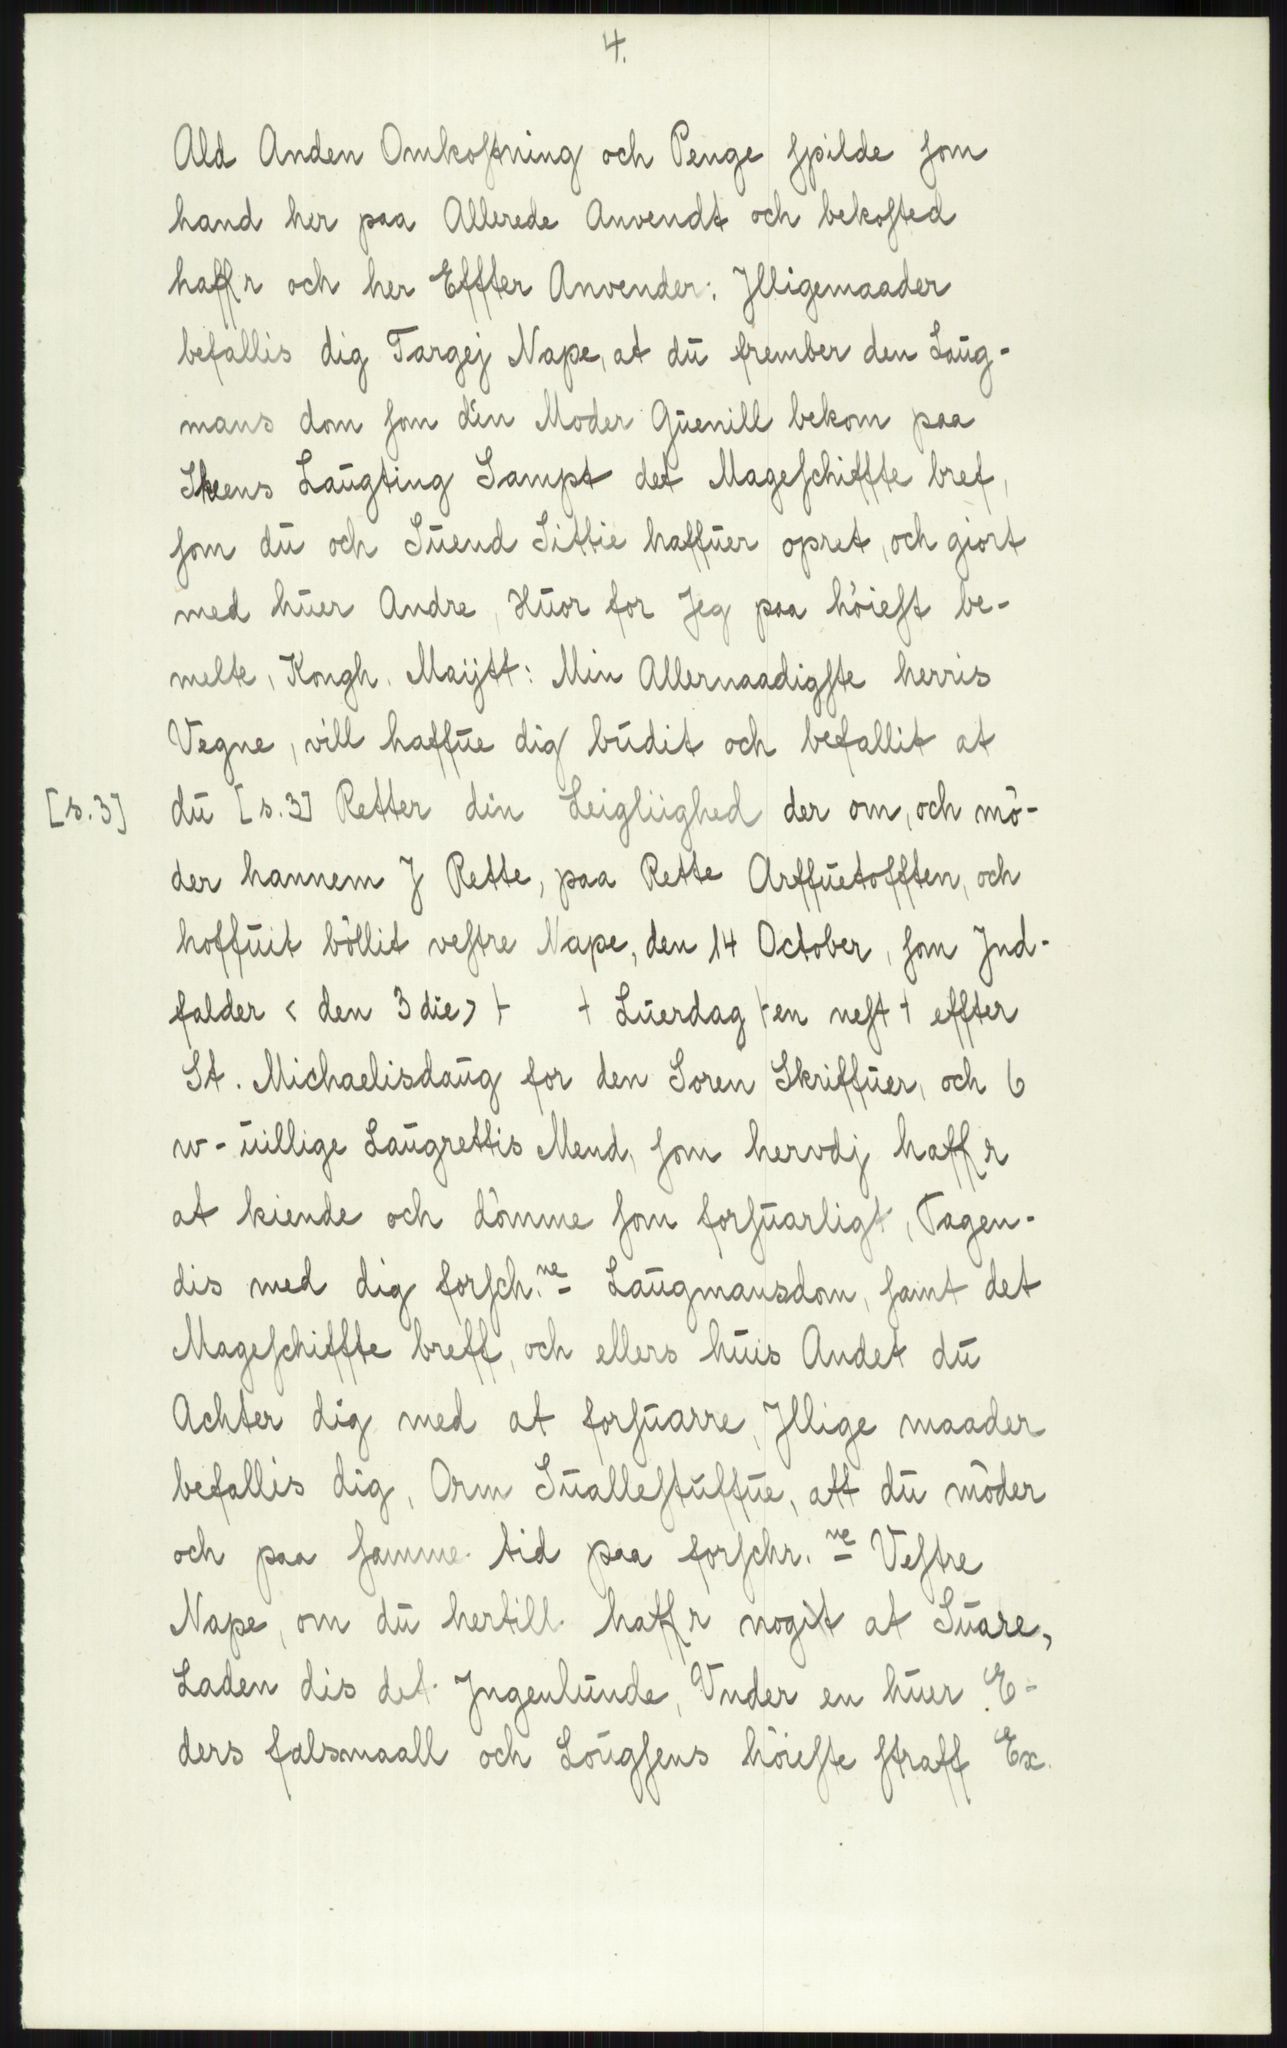 4.
Ald Anden Omkostning och Penge spilde som
hand her paa Allerede Anvendt och bekosted
haffr och her Effter Anvender. Jlligemaader
befallis dig Targej Nape, at dū frember den Laūg-
mans dom som din Moder Gūenill bekom paa
Skeens Laūgting Sampt det Mageschiffte bref,
som dū och Sūend Sittie haffūer opret, och giort
med hūer Andre, Hūor for Jeg paa höiest be-
melte, Kongh. Maÿtt: Min Allernaadigste herris
Vegne, vill haffūe dig būdit och befallit at
[s.3] dū [s.3] Retter din Leigliighed der om, och mö-
der hannem J Rette, paa Rette Arffūetofften, och
hoffūit böllit vestre Nape, den 14 October, som Jnd-
falder < den 3 die> + + Lūerdag +en nest + effter
St. Michaelisdaūg for den Soren Skriffūer, och 6
w-ūillige Laūgrettis Mend, som hervdj haffr
at kiende och dömme som forsūarligt, Tagen-
dis med dig forsch.ne Laūgmansdom, samt det
Mageschiffte breff, och ellers hūis Andet dū
Achter dig med at forsūarre, Jllige maader
befallis dig, Orm Sūallestūffūe, att dū möder
och paa samme tid paa forschr.ne Vestre
Nape, om dū hertill haffr nogit at Sūare,
Laden dis det Jngenlūnde, Vnder en hūer E-
ders falsmaall och Loūgsens höieste straff Ex.